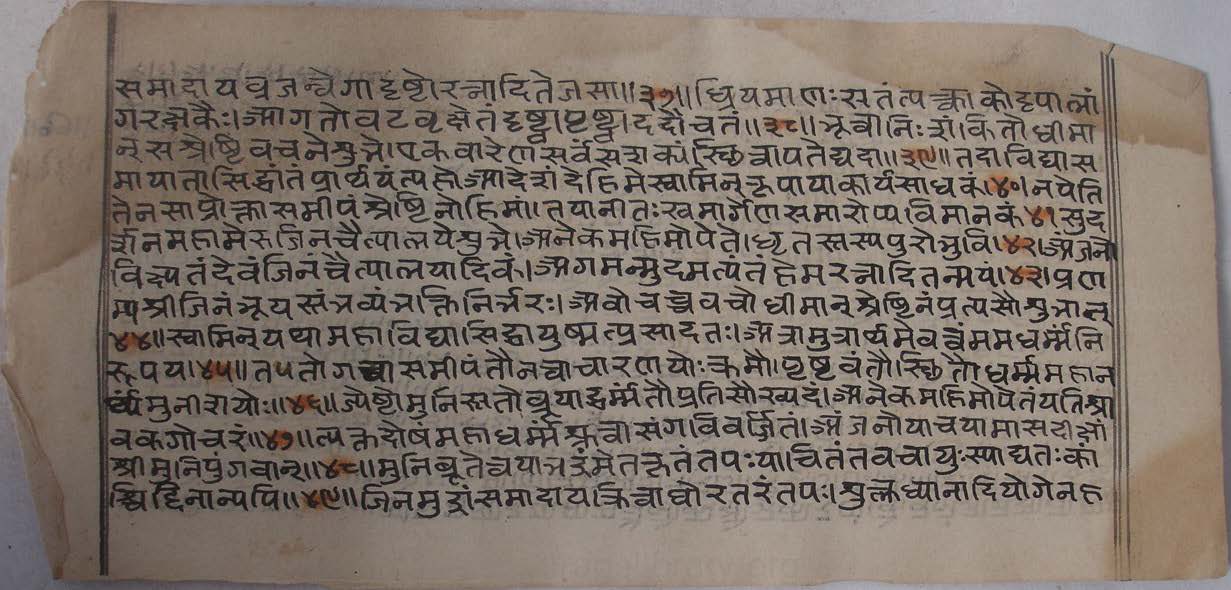 समादाय व्रजन्वेगादृष्टोरत्नादितेजसा॥३७॥ध्रियमाणःसतंत्यक्त्वाकोट्टपालां
गरक्षकैः।आगतोवटवृक्षेतंदृष्ट्वापृष्ट्वाददौचतं॥३८॥भूवीनिःशंकितोधीमा
न्सश्रेष्टिवचनेशुभे।एकवारेणसर्वंसशक्यंस्छित्वापतेद्यदा॥३९॥तदाविद्यास
मायातासिद्धांतप्रार्थयंत्यहोआदेशंदेहिमेस्वामिन्कृपायाकार्यसाधकं।४०।नयेति
तेनसाप्रोक्तासमीपंश्रेष्टिनोहिमां।तयानीतःखमार्गेणसमारोप्यविमानकं४१सुद
र्शनमहामेरुजिनचैत्यालयेशुभे।अनेकमहिमोपेतोधृतस्तस्यपुरोभुवि।४२।अंजनो
विक्ष्यतंदेवंजिनंचैत्यालयादिकं।अगमन्मुदमत्यंतंहेमरत्नादितन्मयं।४३।प्रण
म्यश्रीजिनंभूयस्तंभव्यंभक्तिनिर्भरः।अवोचच्चवचोधीमान्श्रेष्टिनंप्रत्यसौशुभान्
४४॥स्वामिन्यथामहाविद्यासिद्धायुष्मत्प्रसादतः।अत्रामुत्रार्थमेवत्वंममधर्म्मंनि
रूपय॥४५॥ततोगत्वासमीपंतौनत्वाचारणयोःक्रमौ।पृष्टवंतौस्छितौधर्म्ममहान
र्घ्यंमुनीशयोः॥४६॥ज्येष्टोमुनिस्ततोब्रूयाद्धर्म्मंतौप्रतिसौख्यदं।अनेकमहिमोपेतंयतिश्रा
वकगोचरं॥४७॥त्यक्तदोषंमहाधर्म्मंश्रुत्वासंगविवर्जितं।अंजनोयाचयामासदीक्षां
श्रीमुनिपुंगवान्॥४८॥मुनिब्रूतेत्वयाभद्रंमेतत्कृतंतपःयाचितंतवचायुःस्याद्यतःका
श्चिद्दिनान्यपि॥४९॥जिनमुद्रांसमादायक्रित्वाघोरतरंतपः।शुक्लध्यानादियोगेनह